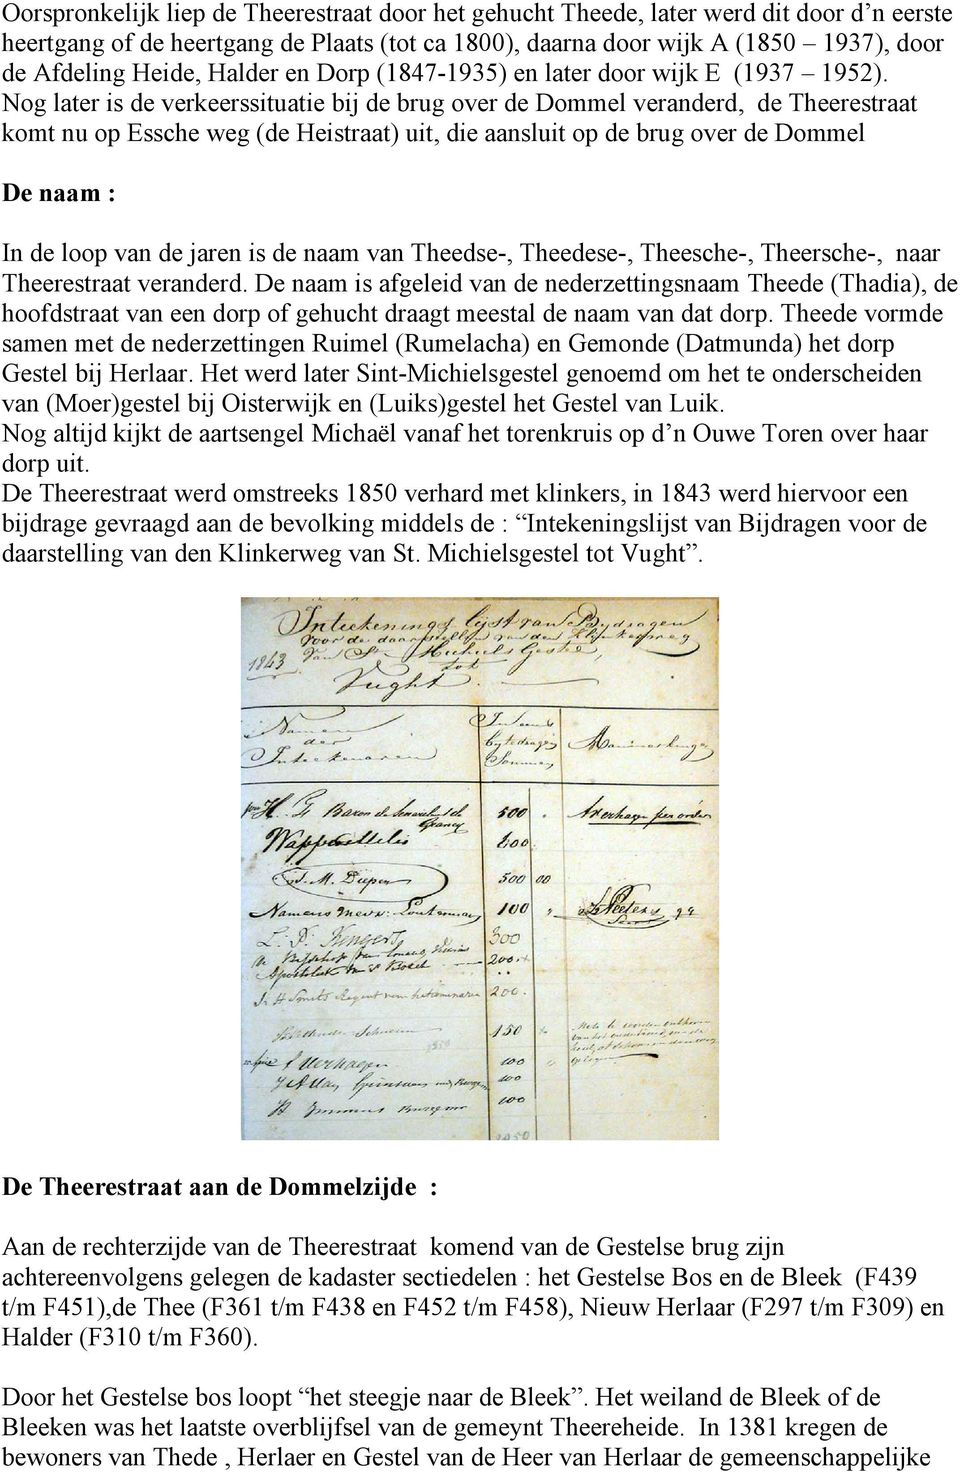 Oorspronkelijk liep de Theerestraat door het gehucht Theede, later werd dit door d’n eerste
heertgang of de heertgang de Plaats (tot ca 1800), daarna door wijk A (1850 – 1937), door
de Afdeling Heide, Halder en Dorp (1847-1935) en later door wijk E (1937 – 1952).
Nog later is de verkeerssituatie bij de brug over de Dommel veranderd, de Theerestraat
komt nu op Essche weg (de Heistraat) uit, die aansluit op de brug over de Dommel
De naam :
In de loop van de jaren is de naam van Theedse-, Theedese-, Theesche-, Theersche-, naar
Theerestraat veranderd. De naam is afgeleid van de nederzettingsnaam Theede (Thadia), de
hoofdstraat van een dorp of gehucht draagt meestal de naam van dat dorp. Theede vormde
samen met de nederzettingen Ruimel (Rumelacha) en Gemonde (Datmunda) het dorp
Gestel bij Herlaar. Het werd later Sint-Michielsgestel genoemd om het te onderscheiden
van (Moer)gestel bij Oisterwijk en (Luiks)gestel het Gestel van Luik.
Nog altijd kijkt de aartsengel Michaël vanaf het torenkruis op d’n Ouwe Toren over haar
dorp uit.
De Theerestraat werd omstreeks 1850 verhard met klinkers, in 1843 werd hiervoor een
bijdrage gevraagd aan de bevolking middels de : “Intekeningslijst van Bijdragen voor de
daarstelling van den Klinkerweg van St. Michielsgestel tot Vught”.
Inteekenings lijst van Bijdragen
voor de daarstelling van den Klinkerweg
1843 van St Michiels Gestel,
tot
Vught.
Namen
der
Inteekenaren
bijtedragen
Sommen
H. G. Baron de Senarclens de
Grancy
500
200
J. M. Diepen 500 00
Namens mevr: 100
300
200
200.
150
Verhagen 100
100
100
De Theerestraat aan de Dommelzijde :
Aan de rechterzijde van de Theerestraat komend van de Gestelse brug zijn
achtereenvolgens gelegen de kadaster sectiedelen : het Gestelse Bos en de Bleek (F439
t/m F451),de Thee (F361 t/m F438 en F452 t/m F458), Nieuw Herlaar (F297 t/m F309) en
Halder (F310 t/m F360).
Door het Gestelse bos loopt “het steegje naar de Bleek”. Het weiland de Bleek of de
Bleeken was het laatste overblijfsel van de gemeynt Theereheide. In 1381 kregen de
bewoners van Thede , Herlaer en Gestel van de Heer van Herlaar de gemeenschappelijke